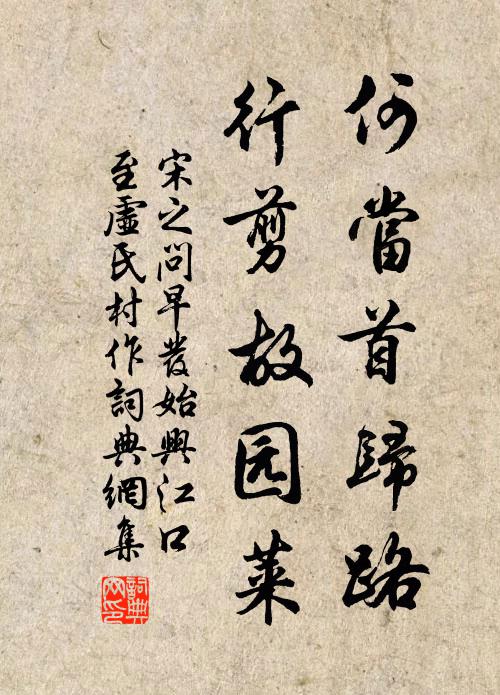 何當首歸路
行剪故园莱
宋之問早發始興江口
至虛氏村作詞典網集
詞典
网印